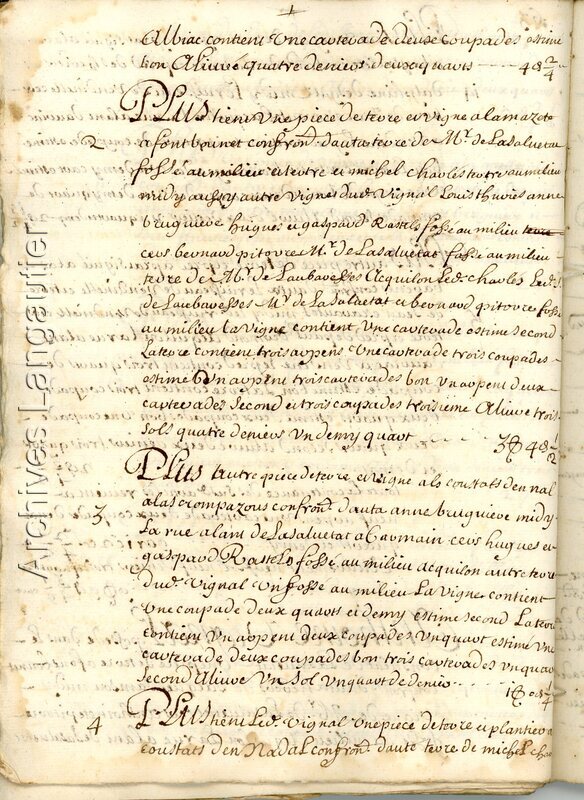 Albiac contient une carterade deux coupades estime
bon Alivré quatre deniers deux quarts 4 d 2/4
PLUS tient une piece de terre et vigne a la mazote
2 a font bounet confron.t d'auta terre de Mr. de Lasaluetat
fossé au milieu et entre et michel charles terre au milieu
midy aussy autre vigne dud. vignal Louis thuries anne
bruguiere hugues et gaspard Rastels fossé au milieu terre
cers bernard pitorre Mr. de Lasaluetat fosse au milieu
terre de Mr. de Lacbavesses Acquilon Led. charles Led. S.
de Lacbavesses Mr. de Lasaluetat et bernard pitorre fosse
au milieu La vigne contient une carterade estime second
La terre contient trois arpens une carterade trois coupades
estime un arpent trois carterades bon un arpent deux
carterades second et trois coupades troisieme Alivre trois
sols quatre deniers un demy quart 3 s 4 d 1/2
PLUS autre piece de terre et vigne als coustats den nal
3 a las crompazous confron.t d'auta anne bruguiere midy
La rue alant de Lasaluetat a Carmain cers hugues et
gaspard Rastels fossé au milieu acquilon autre terre
dud. vignal un fossé au milieu La vigne contient
une coupade deux quarts et demy estime second La terre
contient un arpent deux coupades un quart estime une
carterade deux coupades bon trois carterades un quart
second Alivre un sol un quart de denier 1 s 0 d 1/4
4 PLUS tient Led. vignal une piece de terre et plantier a
coustats den Nadal confron.t d'aute terre de michel char
Archives Langautier